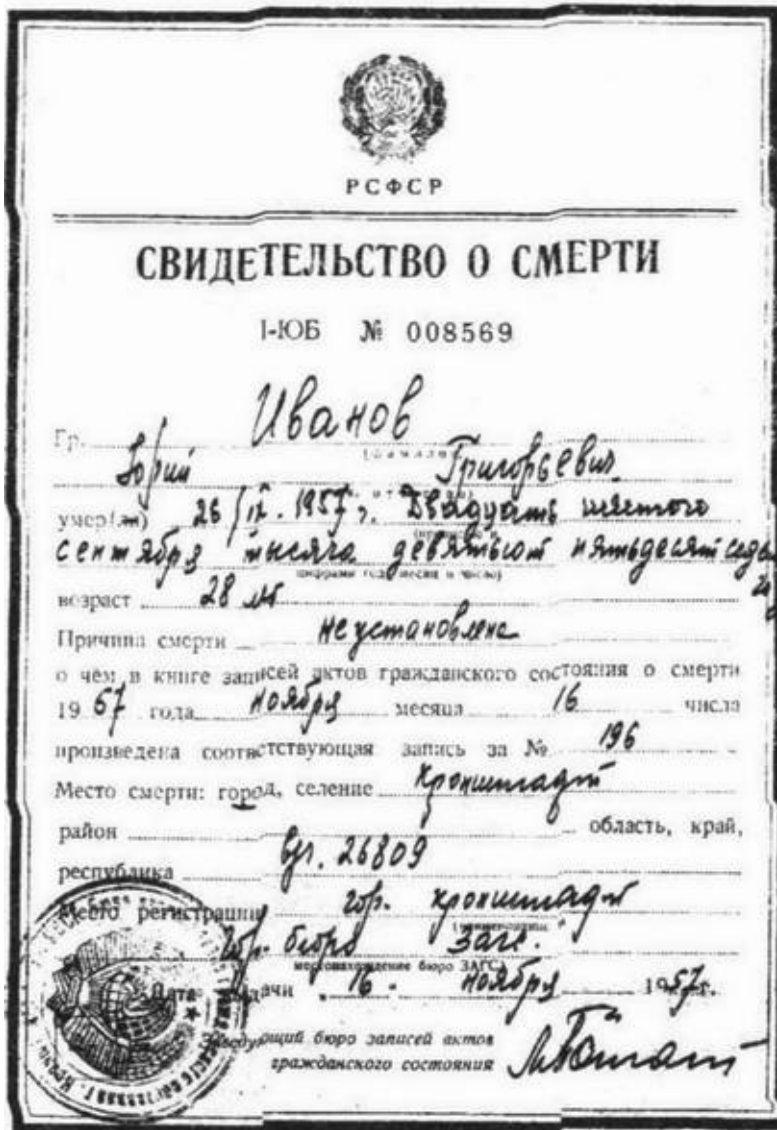 РСФСР
СВИДЕТЕЛЬСТВО О СМЕРТИ
I-ЮБ № 008569
Гр. Иванов
(фамилия)
Юрий Григорьевич
умер(ла) 26/IX-1957г. Двадцать шестого
сентября тысяча девятьсот пятьдесят седь
цифрами год, месяц и число)
возраст 28 лет
Причина смерти не установлена
о чем в книге записей актов гражданского состояния о смерти
19 57 года ноября месяца 16 числа
произведена соответствующая запись за № 196
Место смерти: город, селение Кронштадт
район область, край,
республика в/ч. 26809
Место регистрации гор. Кронштадт
гор. бюро загс.
местонахождение бюро ЗАГС)
Дата выдачи "16" ноября 1957г.
Заведующий бюро записей актов
гражданского состояния